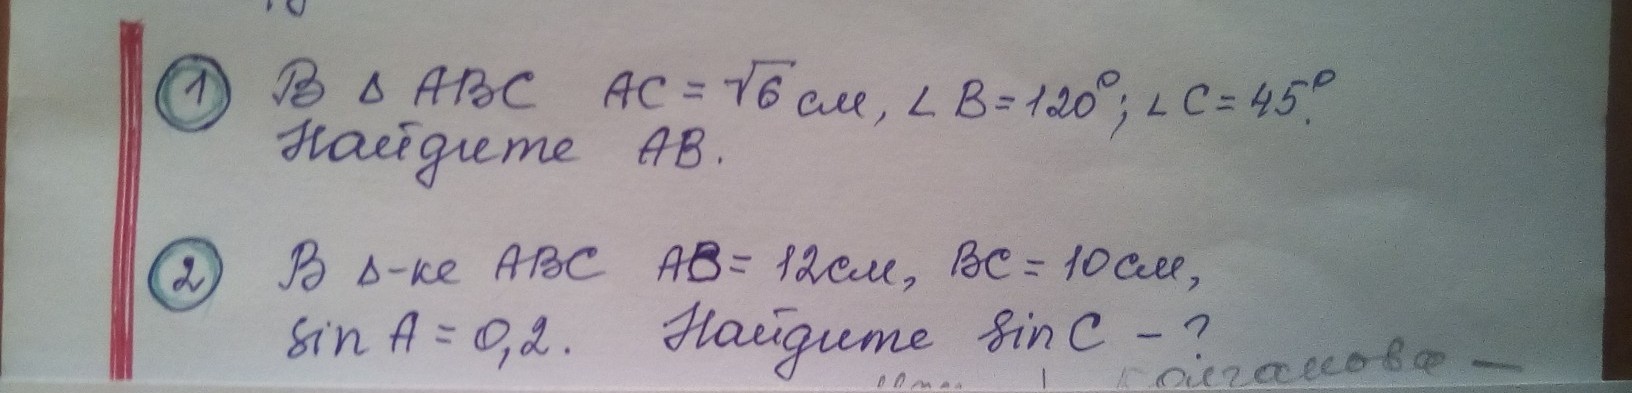 1 В Δ ABC AC = √6 см, ∠ B = 120°; ∠ C = 45°.
Найдите AB.
2 В Δ-ке ABC AB = 12 см, BC = 10 см,
sin A = 0,2. Найдите sin C - ?